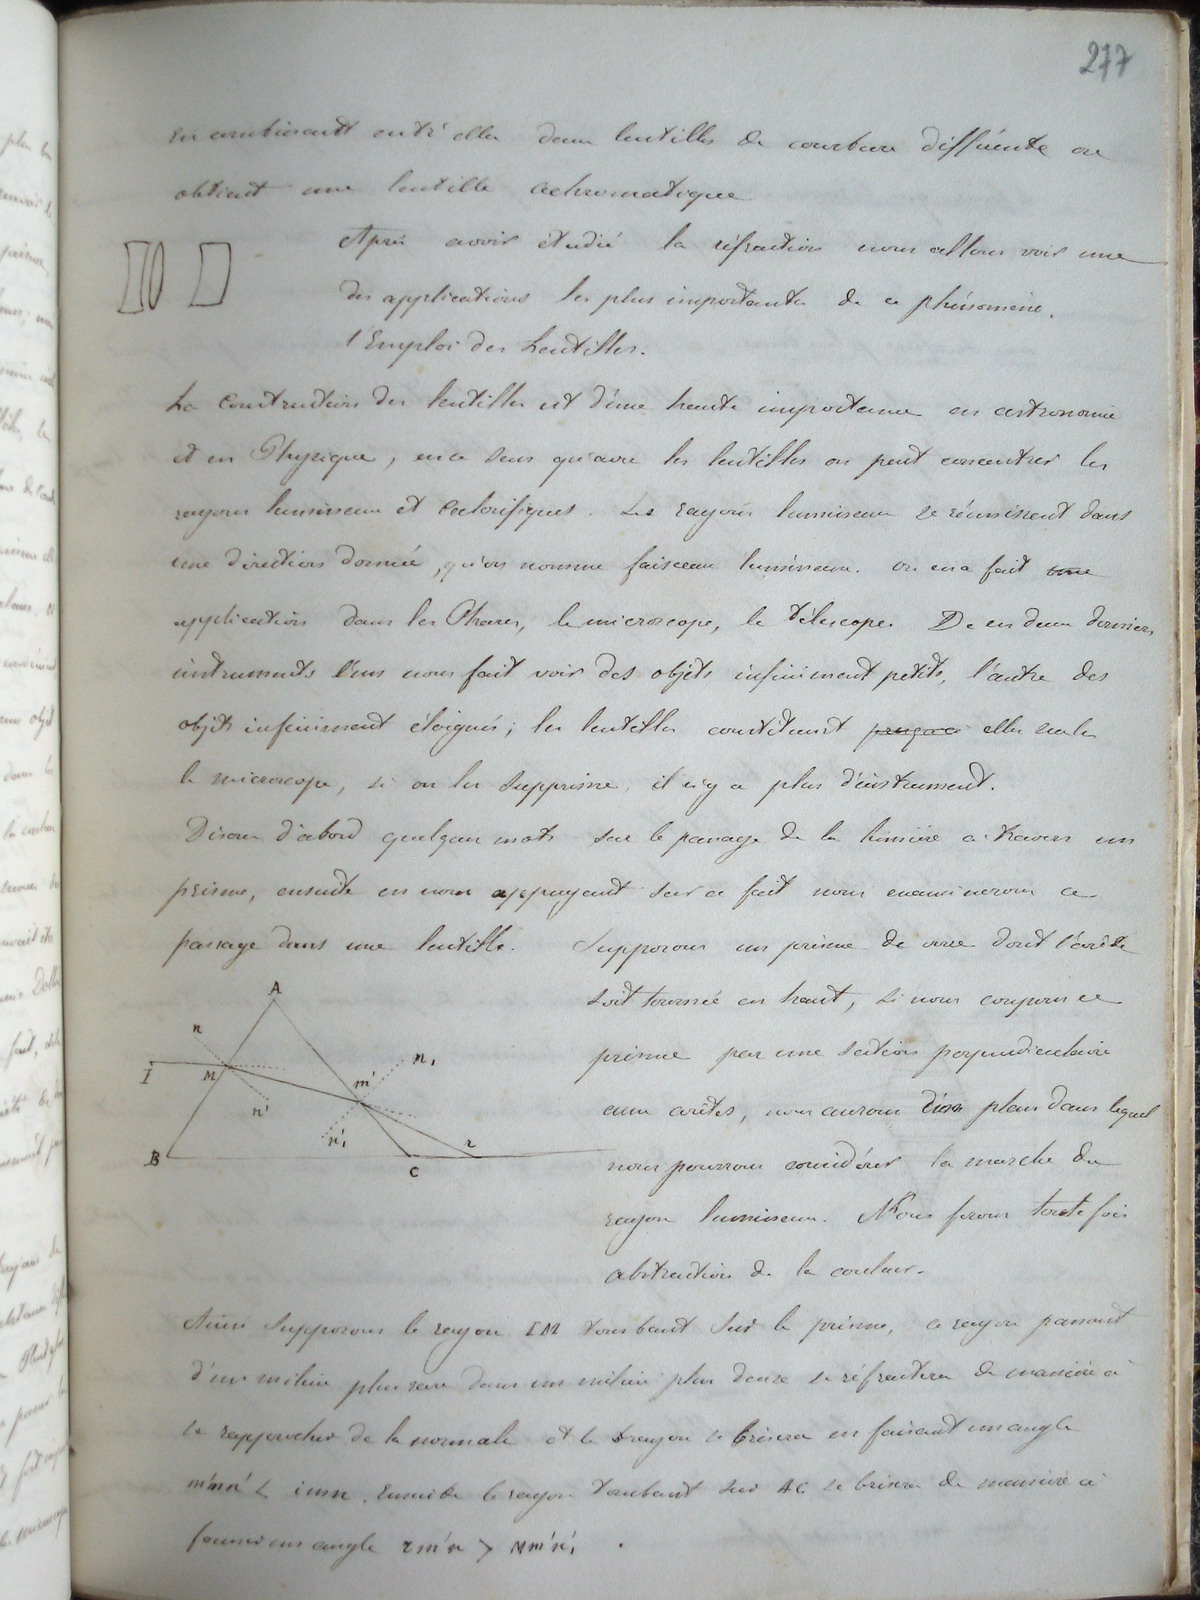 277
En combinant entr'elles deux lentilles de courbure différente on
obtient une lentille achromatique
Après avoir étudié la réfraction nous allons voir une
des applications les plus importantes de ce phénomène.
l'Emploi des Lentilles.
La Construction des lentilles est d'une haute importance en astronomie
et en Physique, en ce sens qu'avec les lentilles on peut concentrer les
rayons lumineux et Calorifiques. Les rayons lumineux se réunissent dans
une direction donnée, qu'on nomme faisceau lumineux. On en a fait une
application dans les Phares, le microscope, le télescope. De ces deux derniers
instruments l'un nous fait voir des objets infiniment petits, l'autre des
objets infiniment éloignés; les lentilles constituent presque elles seules
le microscope, si on les supprime, il n'y a plus d'instrument.
Disons d'abord quelques mots sur le passage de la lumière à travers un
prisme, ensuite en nous appuyant sur ce fait nous examinerons ce
passage dans une lentille. Supposons un prisme de verre dont l'arête
soit tournée en haut, si nous coupons ce
prisme par une section perpendiculaire
aux arêtes, nous aurons plan dans lequel
nous pourrons considérer la marche du
rayon lumineux. Nous ferons toutefois
abstraction de la couleur.
A
n
I
M
n'
m'
n,
n',
B
C
r
Ainsi supposons le rayon IM tombant sur le prisme, ce rayon passant
d'un milieu plus rare dans un milieu plus dense se réfractera de manière à
se rapprocher de la normale et le rayon se brisera en faisant un angle
m'mn' < imn. Ensuite le rayon tombant sur AC se brisera de manière à
former un angle rm'n > Mm'n',